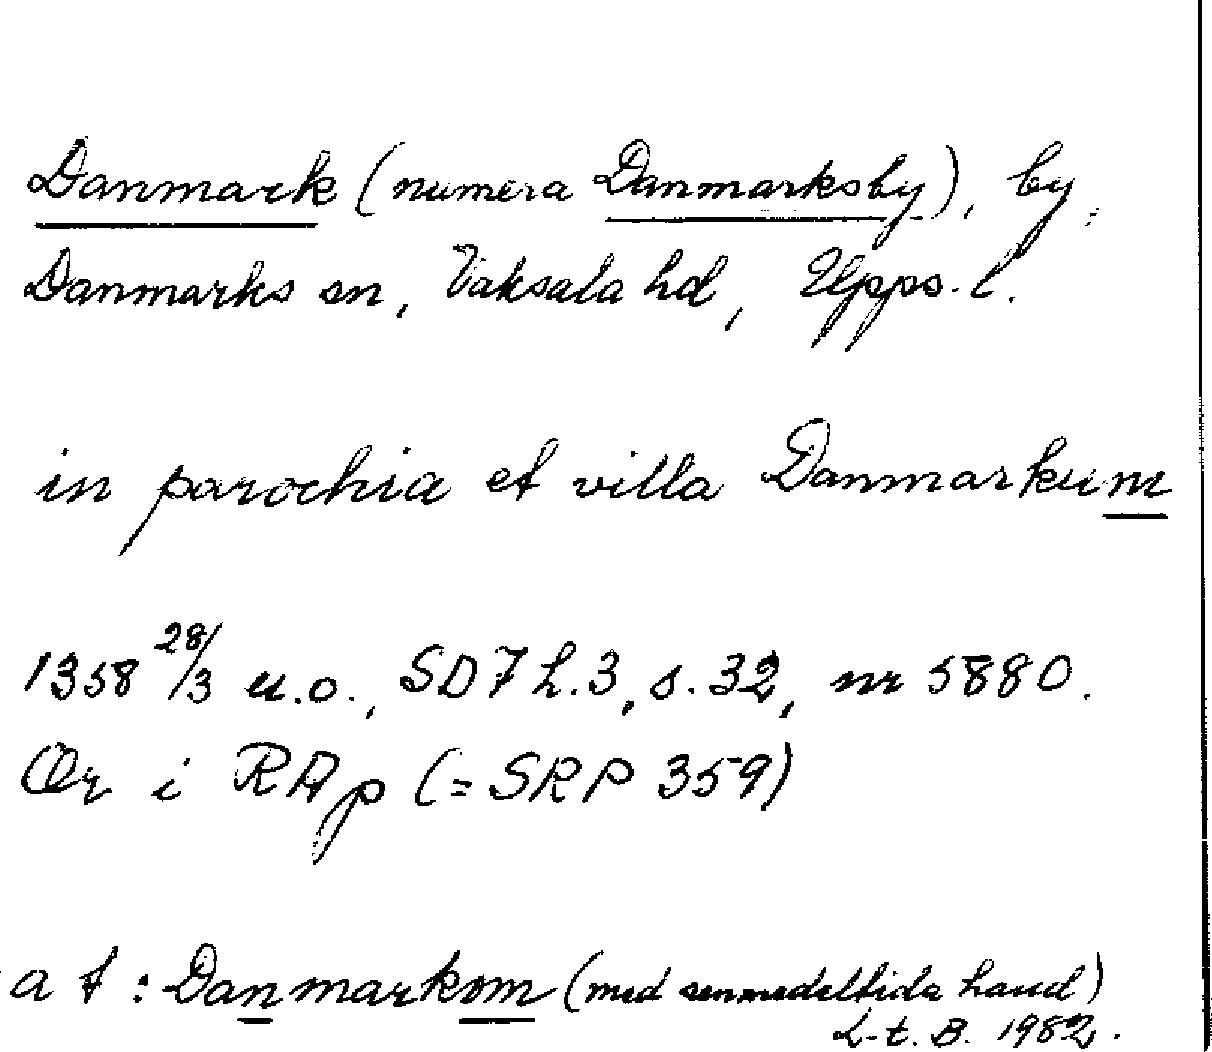 Danmark (numera Danmarksby), by,
Danmarks sn, Vaksala hd, Upps. l.
in parochia et villa Danmarkum
1358 28/3 u.o., SD 7 h.3, s. 32, nr 5880.
Or i RAp (= SRP 359)
a t : Danmarkom (med senmedeltida hand)
L-t. B. 1982.